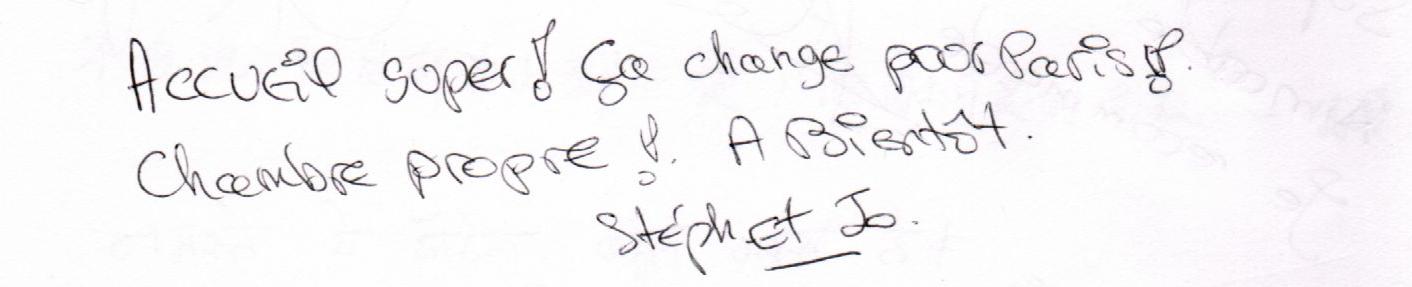 Accueil super! Ça change pour Paris!.
Chambre propre !. A Bientôt.
Stéph Et Jo.